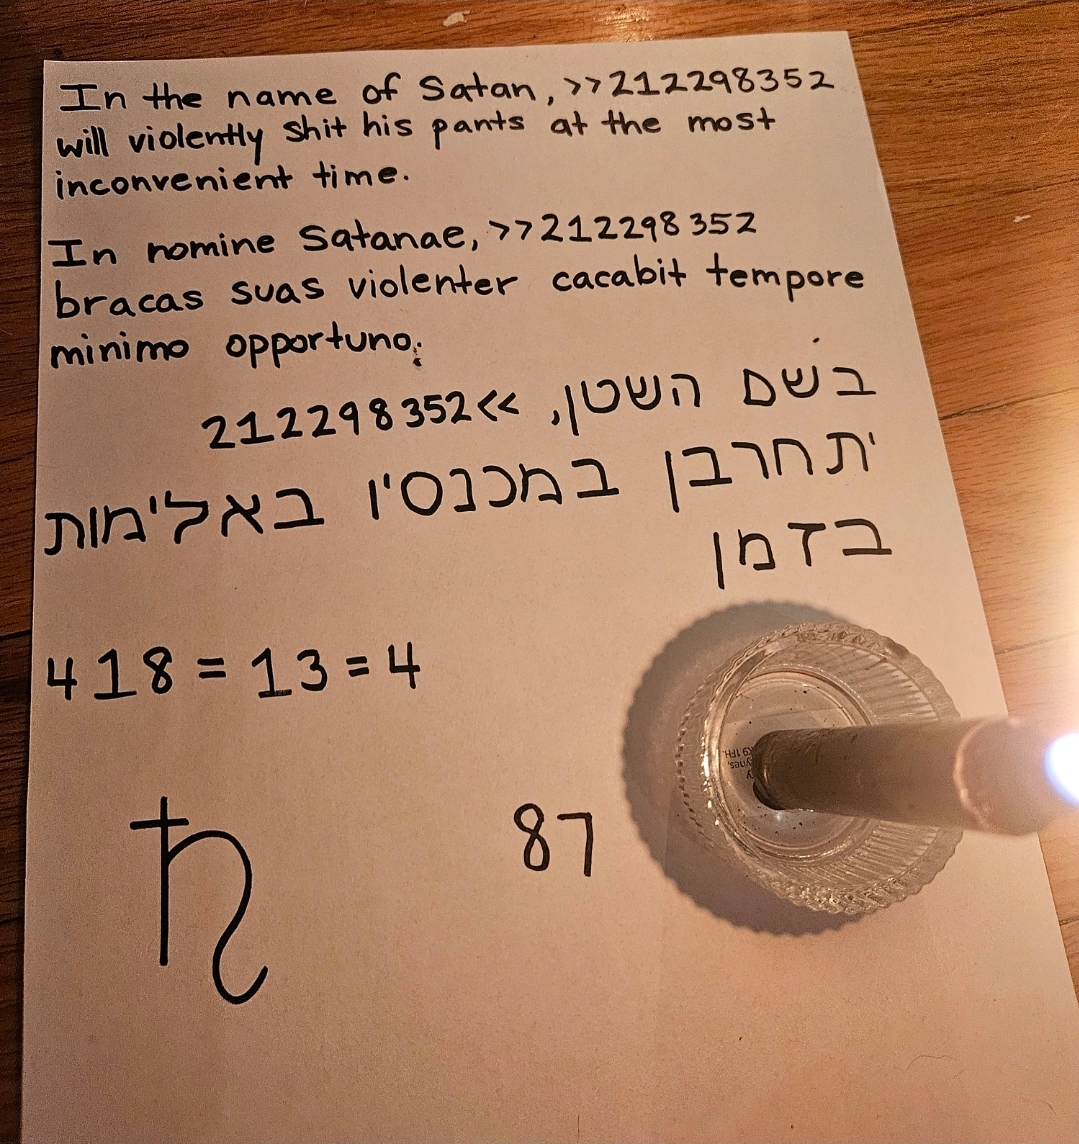 In the name of Satan, >>212298352
will violently shit his pants at the most
inconvenient time.
In nomine Satanae, >>212298352
bracas suas violenter cacabit tempore
minimo opportuno.
בשם השטן, >>212298352
יתחרבן במכנסיו באלימות
בזמן
418 = 13 = 4
♄
87
K9 1FH.